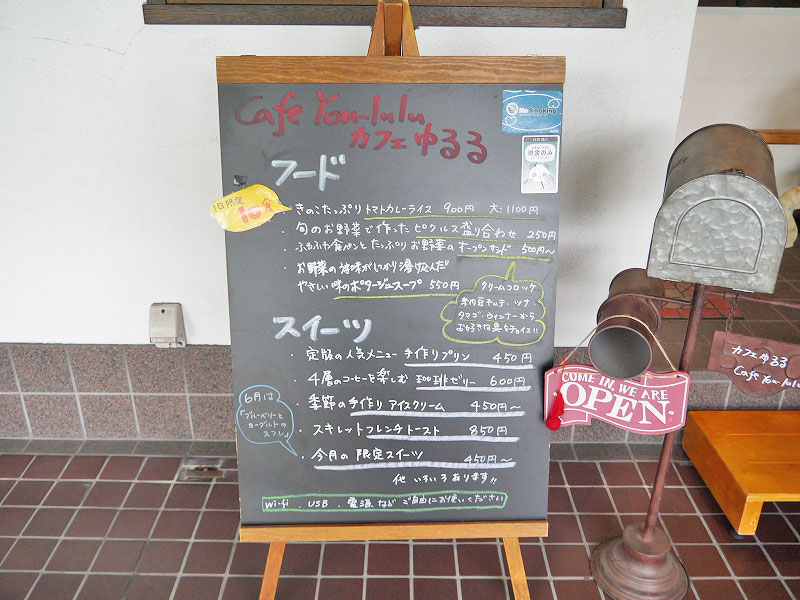 Cafe You-lulu
カフェ ゆるる
No Smoking
現金のみ
フード
1日限定
10食
・きのこたっぷり トマトカレーライス 900円 大:1100円
・旬のお野菜で作った ピクルス盛り合わせ 250円
ふわふわ食パンとたっぷりお野菜の オープンサンド 500円~
・お野菜の旨味がしっかり溶け込んだ
やさしい味のポタージュスープ 550円
クリームコロッケ
タマゴ・ウィンナーから
お好きな具をチョイス!!
スイーツ
・定版の人気メニュー 手作りプリン 450円
・4層のコーヒーを楽しむ 珈琲ゼリー 600円
・季節の手作り アイスクリーム 450円~
・スキレットフレンチトースト 850円
・今月の限定スイーツ 450円~
6月は
「ブルーベリーと
ヨーグルトの
スフレ」
他 いろいろあります!!
Wi-fi . USB . 電源など ご自由にお使いください
COME IN, WE ARE
OPEN
カフェゆるる
Cafe You-lulu